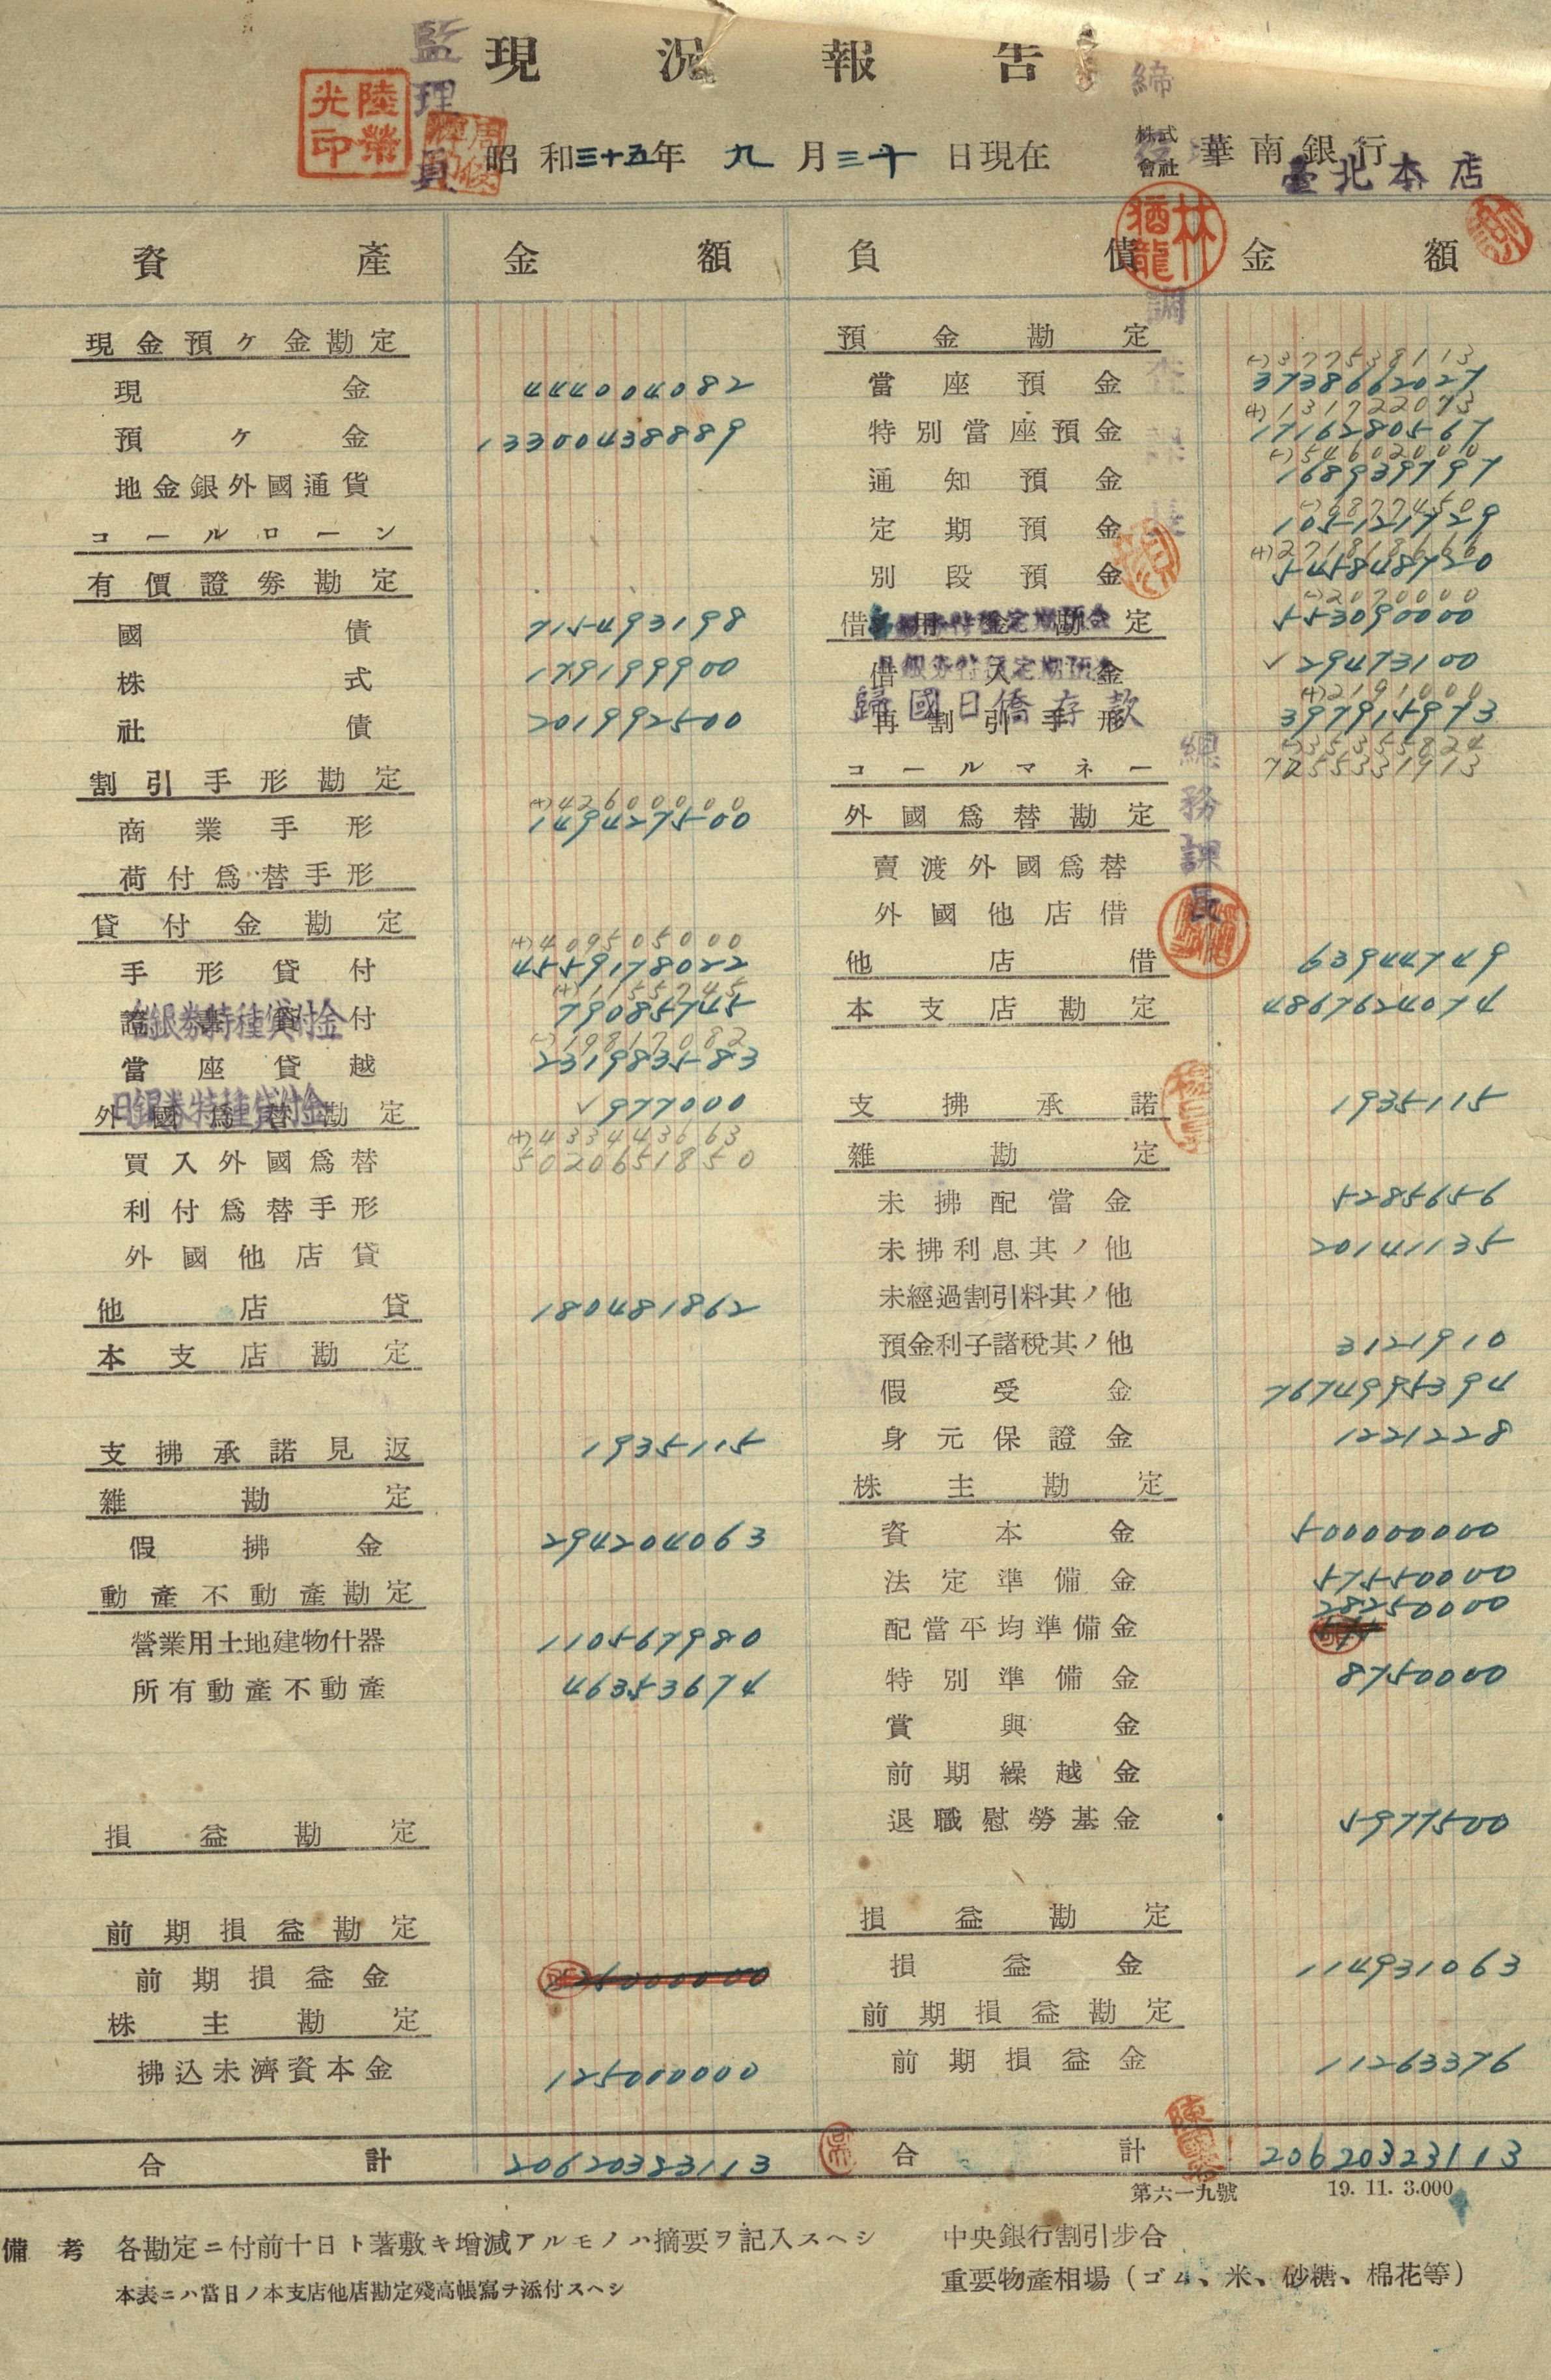 現況報告
監理員
陸榮光印
昭和三十五年 九月三十日現在
株式會社 華南銀行
臺北本店
林猶龍
資產 金額 負債 金額
現金預ケ金勘定
現金 444004082
預ケ金 13300438889
地金銀外國通貨
コールローン
有價證券勘定
國債 715493198
株式 179199900
社債 201992500
割引手形勘定
(+)42600000
商業手形 149427500
荷付爲替手形
貸付金勘定
(+)409505000
手形貸付 4559178022
(+)1155745
證書貸付 79085745
台銀券特種貸付金
(-)19817082
當座貸越 231983583
外國爲替勘定 ✓977000
日銀券特種貸付金
(+)433443663
買入外國爲替 5020651850
利付爲替手形
外國他店貸
他店貸 180481862
本支店勘定
支拂承諾見返 1935115
雜勘定
假拂金 294204063
動產不動產勘定
營業用土地建物什器 110567980
所有動產不動產 46353674
損益勘定
前期損益勘定
前期損益金
株主勘定
拂込未濟資本金 125000000
合計 20620323113
預金勘定
(-)377538113
當座預金 3738662027
(+)131722073
特別當座預金 1716280567
(-)54602000
通知預金 168939797
(-)68774450
定期預金 105121729
(+)271818666
別段預金 545848720
(-)2070000
借用金勘定 553090000
借入金 ✓29473100
日銀券特種定期預金
(+)2191000
再割引手形 397915973
歸國日僑存款
(-)35355824
コールマネー 7255331913
外國爲替勘定
賣渡外國爲替
外國他店借
他店借 63944749
本支店勘定 4867624074
支拂承諾 1935115
雜勘定
未拂配當金 5285656
未拂利息其ノ他 20141135
未經過割引料其ノ他
預金利子諸稅其ノ他 3121910
假受金 7674995394
身元保證金 1221228
株主勘定
資本金 500000000
法定準備金 57550000
配當平均準備金 28250000
特別準備金 8750000
賞與金
前期繰越金
退職慰勞基金 5977500
損益勘定
損益金 114931063
前期損益勘定
前期損益金 11263376
合計 20620323113
調查課長
總務課長
第六一九號 19. 11. 3.000
備考 各勘定ニ付前十日ト著敷キ增減アルモノハ摘要ヲ記入スヘシ
本表ニハ當日ノ本支店他店勘定殘高帳寫チ添付スヘシ
中央銀行割引步合
重要物產相場（ゴム、米、砂糖、棉花等）